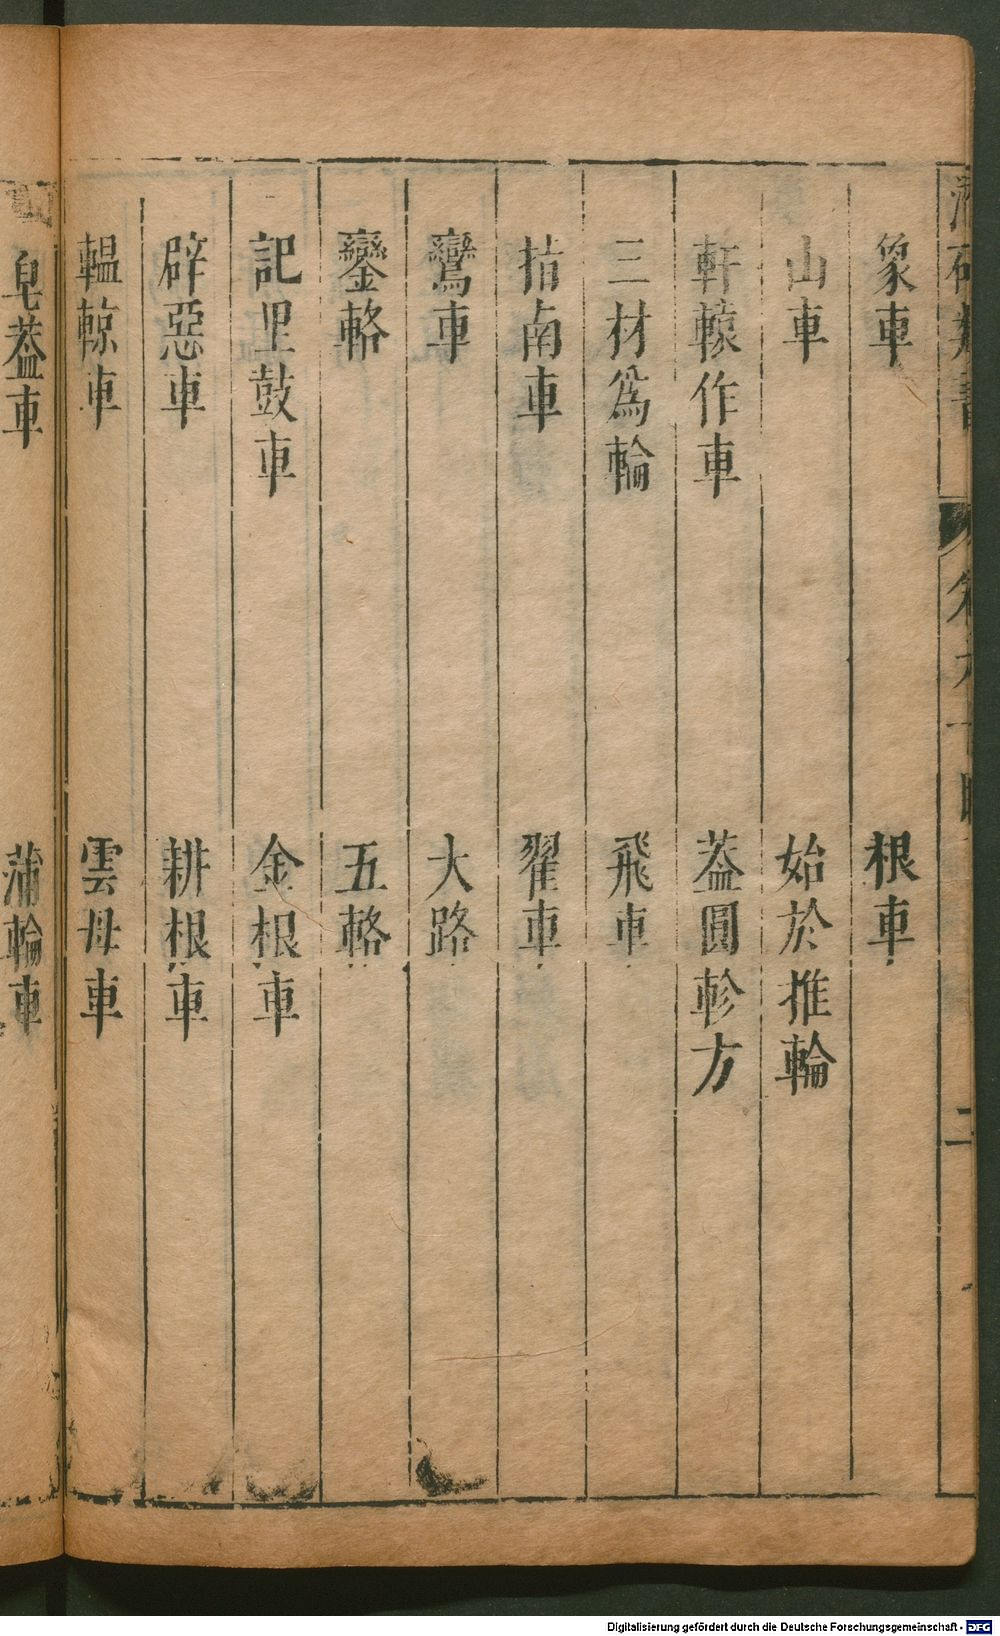 象車 根車
山車 始於推輪
軒轅作車 葢圓軫方
三材爲輪 飛車
指南車 翟車
鸞車 大路
鑾輅 五輅
記里鼓車 金根車
辟惡車 耕根車
轀輬車 雲母車
皂葢車 蒲輪車
二
Digitalisierung gefördert durch die Deutsche Forschungsgemeinschaft - DFG